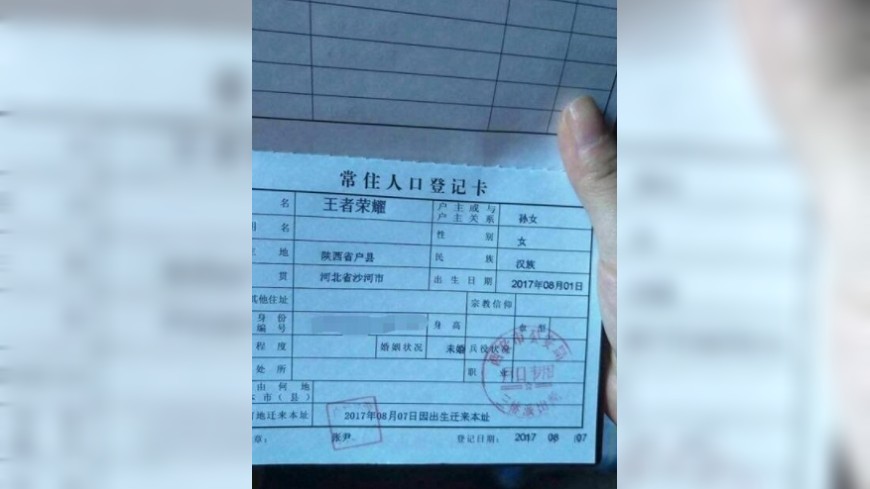 常住人口登记卡
名 王者荣耀 户主或与户主关系 孙女
名 性别 女
地 陕西省户县 民族 汉族
贯 河北省沙河市 出生日期 2017年08月01日
其他住址 宗教信仰
身份编号 身高
程度 婚姻状况 未婚 兵役状况
处所 职
由何地
市(县)
地迁来本址 2017年08月07日因出生迁来本址
章: 张尹 登记日期: 2017 08 07